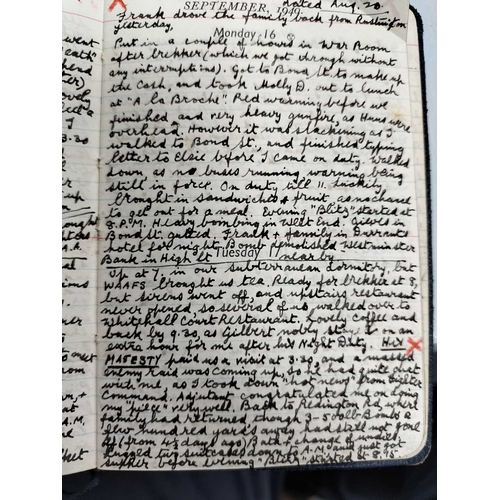 dated Aug. 20.
SEPTEMBER, 1940
Frank drove the family back from Rustington
yesterday.
Monday 16
Put in a couple of hours in War Room
after brekker (which we got through without
any interruptions). Got to Bond St. to make up
the cash, and took Molly D. out to lunch
at "A la Broche" Red warning before we
finished, and very heavy gunfire, as Huns were
overhead. However it was slackening as I
walked to Bond St., and finished typing
letter to Elsie before I came on duty. Walked
down as no buses running, warning being
still in force. On duty till 11. Luckily
brought in sandwiches + fruit as no chance
to get out for a meal. Evening "Blitz" started at
8. P.M. Heavy bombing in West End. Gieves in
Bond St. gutted. Frank + family in Durrants
hotel for night. Bomb demolished Westminster
Bank in High St nearby
Tuesday 17
Up at 7, in our subterranean dormitory, but
WAAFS brought us tea. Ready for brekker at 8,
but sirens went off, and upstairs restaurant
never opened, so several of us walked over to
Whitehall Court Restaurant. Lovely coffee and
back by 9.30, as Gilbert nobly stayed on an
extra hour for me after his Night Duty. HIS
MAJESTY paid us a visit at 3.30, and a massed
enemy raid was coming up, so he had quite chat
with me, as I took down "hot news" from Fighter
Command. Adjutant congratulated me on doing
my "piece" very well. Back to Redington Rd. where
family had returned though 3-500lb Bombs a
few hundred yards away, had still not gone
off (from 4½ days ago) Bath + change of undies
lugged two suitcases down to A.M. and just got
supper before evening "Blitz" started at 8.15
went
head
lovely
3.30
up
in
A.A.
at
to
meet
A.M.